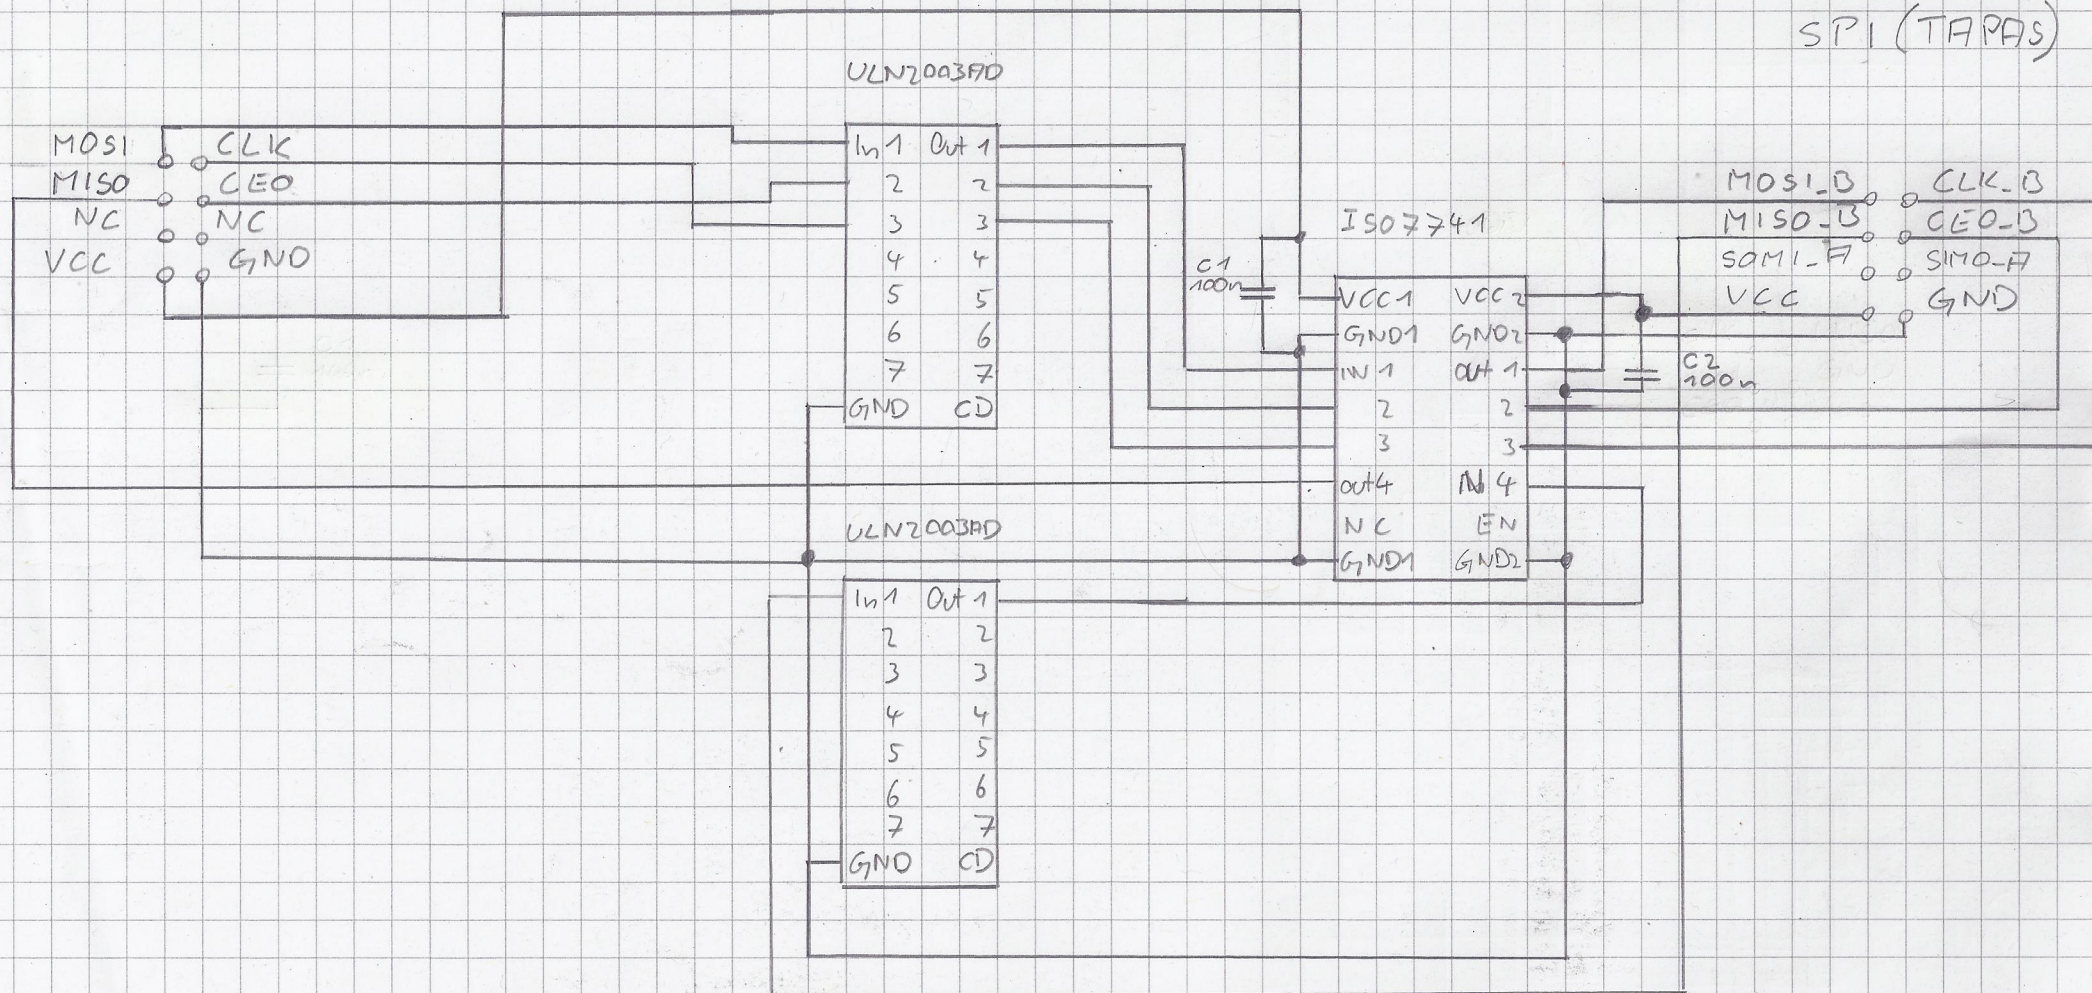 SPI (TAPAS)
ULN2003AD
MOSI CLK
MISO CE0
NC NC
VCC GND
In 1 Out 1
2 2
3 3
4 4
5 5
6 6
7 7
GND CD
ISO7741
C1
100n
VCC1 VCC2
GND1 GND2
IN 1 Out 1
2 2
3 3
Out4 IN 4
NC EN
GND1 GND2
C2
100n
MOSI_B CLK_B
MISO_B CE0_B
SOMI_A SIMO_A
VCC GND
ULN2003AD
In 1 Out 1
2 2
3 3
4 4
5 5
6 6
7 7
GND CD